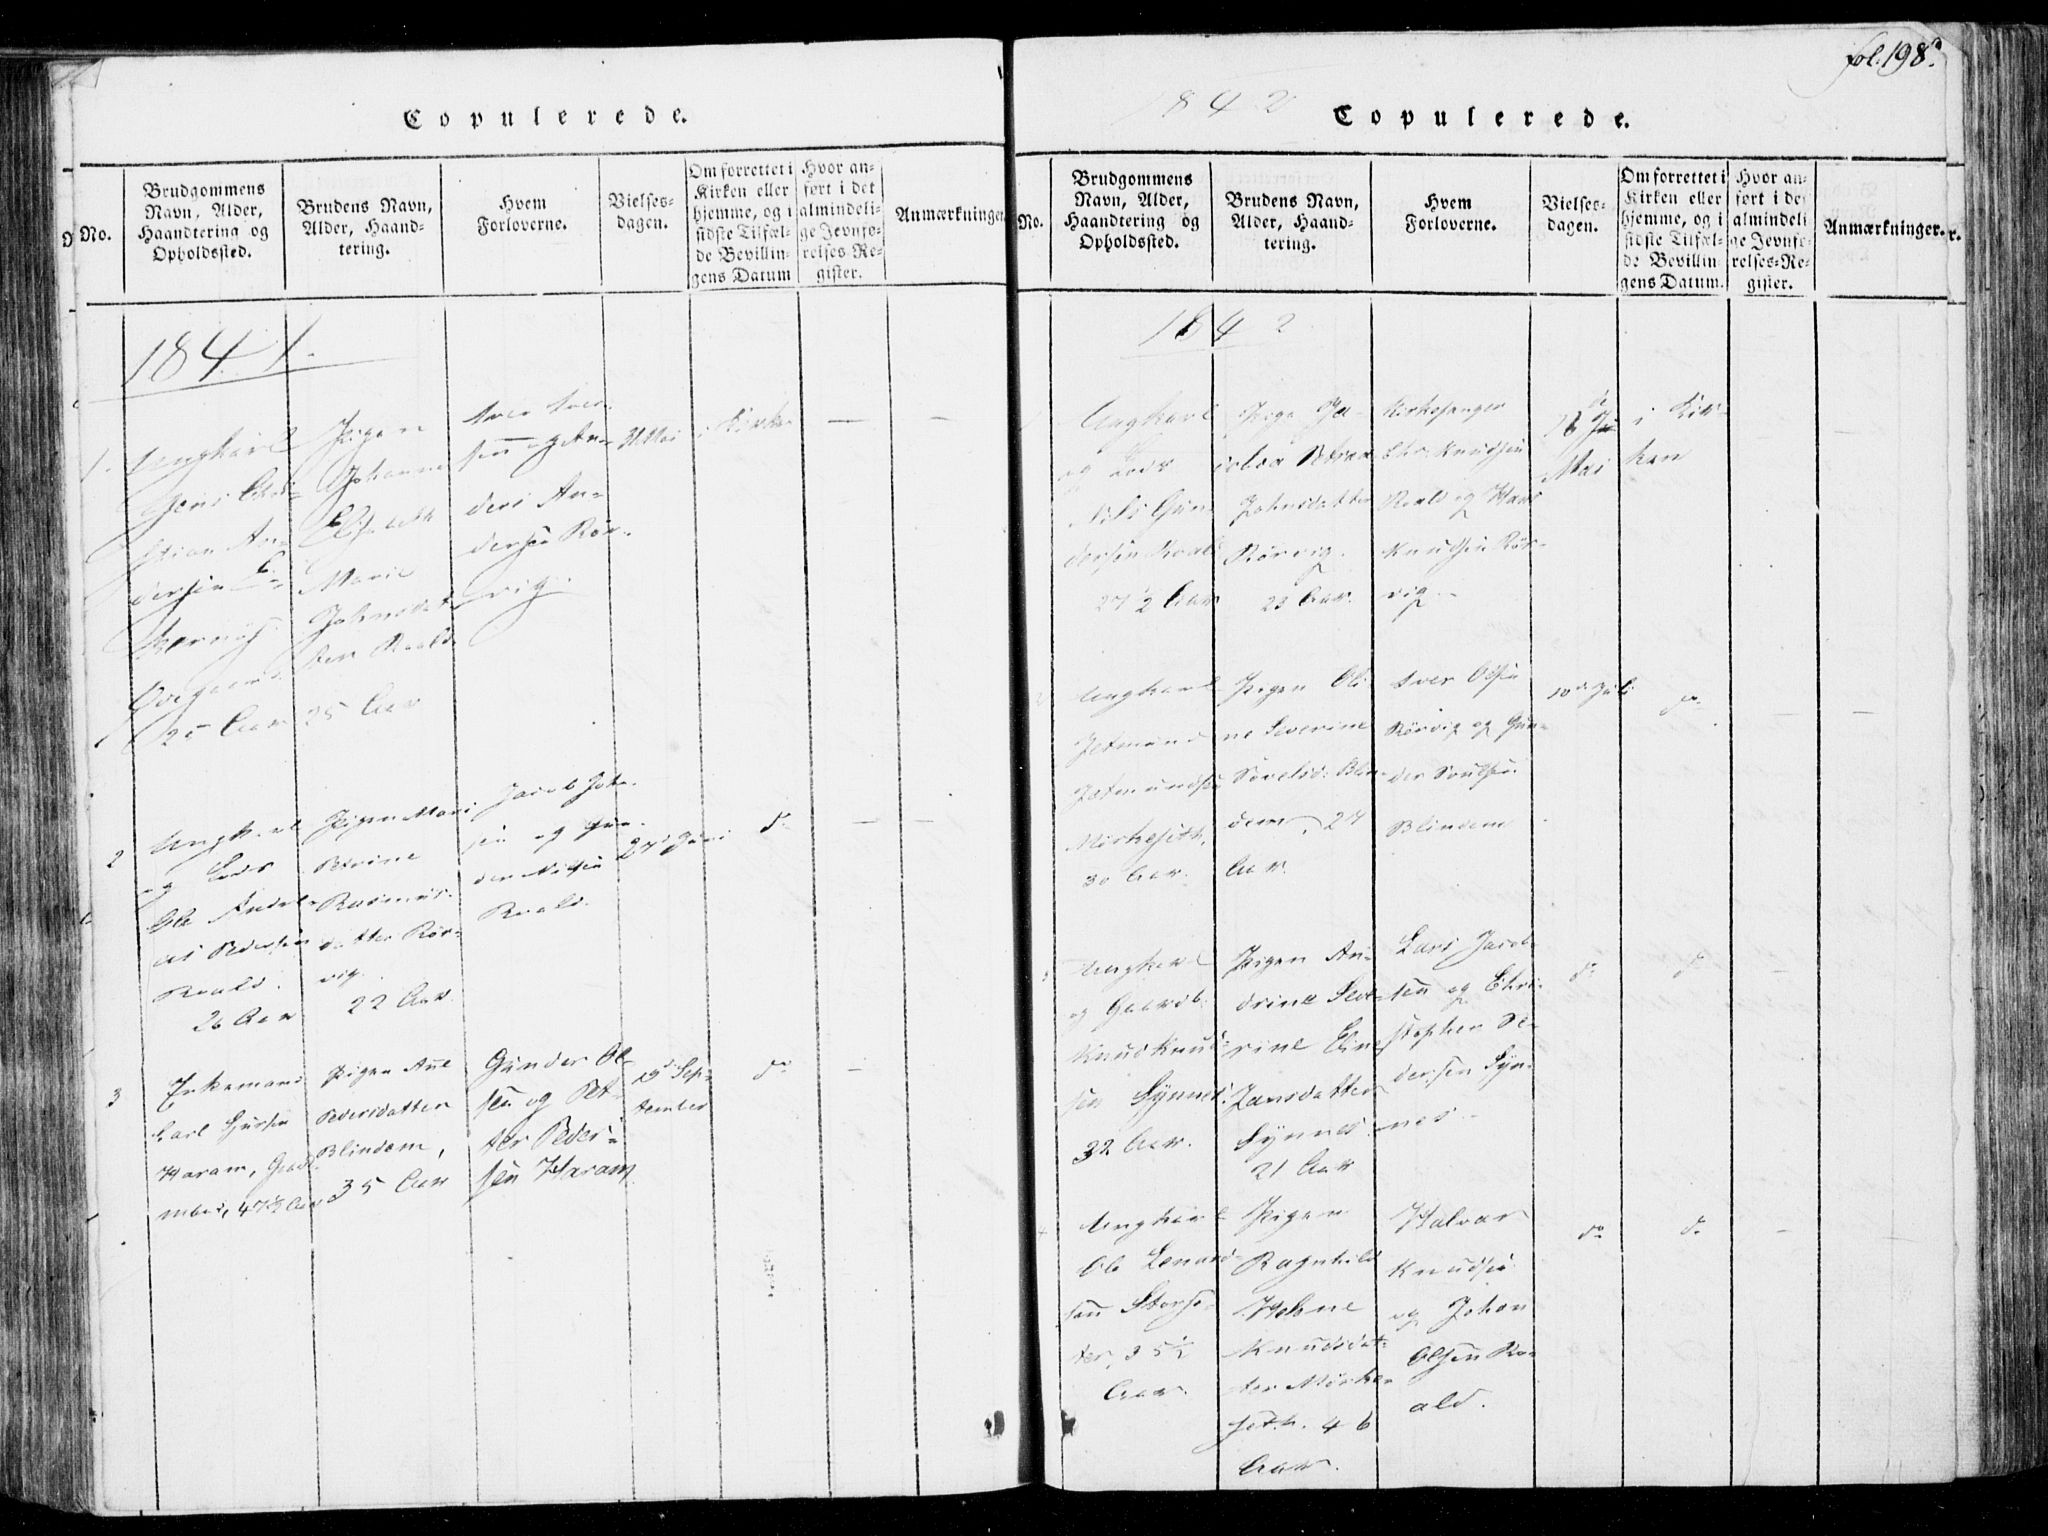 fol. 198.
Copulerede.
No.
Brudgommens
Navn, Alder,
Haandtering og
Opholdssted.
Brudens Navn,
Alder, Haand=
tering.
Hvem
Forloverne.
Vielses=
dagen.
Om forrettet i
Kirken eller
hjemme, og i
sidste Tilfæl=
de Bevillin=
gens Datum
Hvor an=
ført i det
almindeli=
ge Jevnfø=
relses=Re=
gister.
Anmærkninger
1841.
1.
Ungkarl
Jens Chri-
stian An-
dersen
25 Aar
Pigen
Johanne
Elisabeth
Marie
Johnsdat-
ter Roald
25 Aar
Iver Iver-
sen og An-
ders An-
dersen Rør-
vig.
31 Mai
i Kirken
2
Ungkarl
og Lods
Ole Andre-
as Pedersen
Roald.
26 Aar
Pigen Mari
Petrine
Rasmus-
datter Rør-
vig.
22 Aar.
Jacob Joh-
sen og Gun-
der Nilsen
Roald.
27 Juni
do
3
Enkemand
Carl
Haram, Gaard-
mand, 47½ Aar
Pigen Ane
Pedersdatter
Blindem,
35 Aar
Gunder Ol-
sen og Pet-
ter Peder-
sen Haram
29d Sep-
tember
do
1842
Copulerede.
No.
Brudgommens
Navn, Alder,
Haandtering og
Opholdssted.
Brudens Navn,
Alder, Haand=
tering.
Hvem
Forloverne.
Vielses=
dagen.
Om forrettet i
Kirken eller
hjemme, og i
sidste Tilfæl=
de Bevillin
gens Datum.
Hvor an=
ført i det
almindeli
ge Jevnfø=
relses=Re=
gister.
Anmærkninger.
1842
Ungkarl
og Lods
Nils Gun-
dersen Roald
27½ Aar
Pige Ja-
cobea Petrea
Johnsdatter
Rørvig.
23 Aar.
Kirkesanger
Chr. Knudsen
Roald og Hans
Knudsen Rør-
vig.
Mai
i Kir-
ken
Ungkarl
Jetmund
Jetmundsen
Mørkeseth,
30 Aar.
Pigen Oli-
ne Severine
Blin-
dem, 27
Aar.
Iver Olsen
Rørvig og Gun-
der
Blindem
10de Juli
do
Ungkarl
og Gaardb.
Knud Knud-
sen Synnes.
32 Aar.
Pigen An-
drine Seve-
rine Eline
Larsdatter
Synnes
21 Aar
Lars Jacob-
sen og Chri-
stopher Pe-
dersen Syn-
nes.
do
do
Ungkarl
Ole Lenard-
sen Storse-
ter, 35½
Aar.
Pigen
Ragnhild
Helene
Knudsdat-
ter Mørke-
seth. 46
Aar.
Halvar
Knudsen
og Johan
Olsen Ro-
ald.
do
do